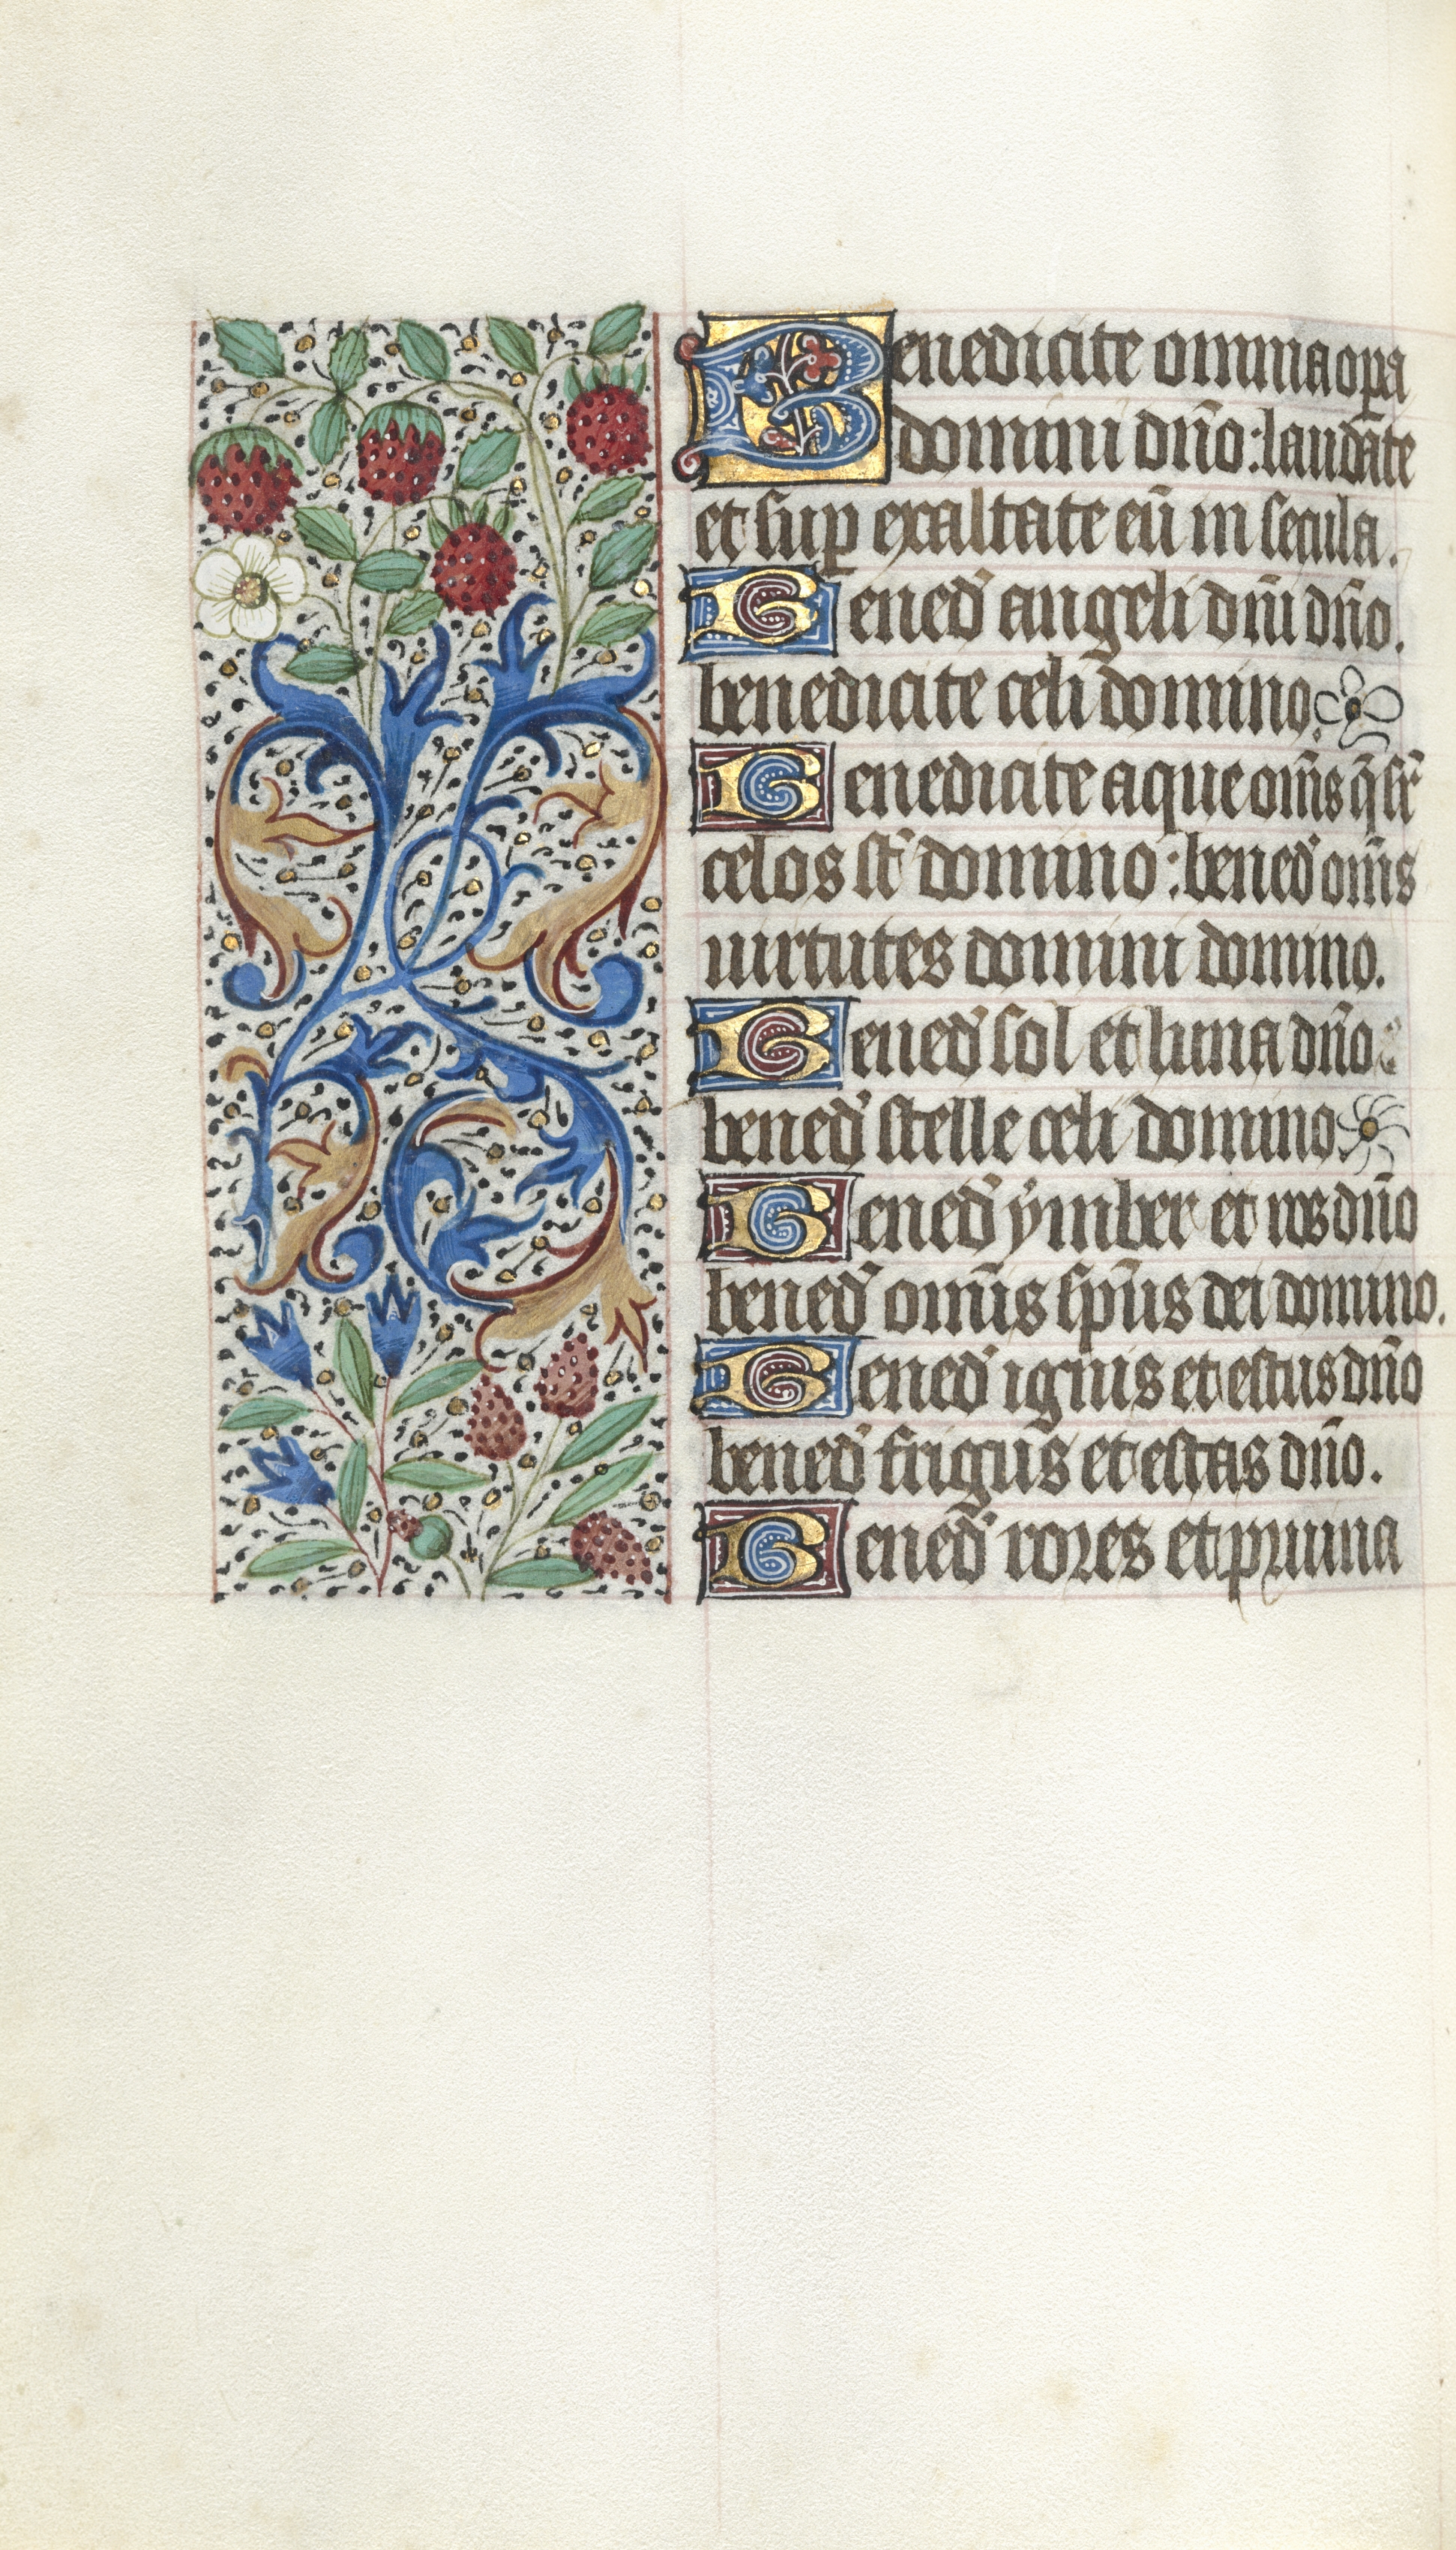 Benedicite omnia opa
domini dño: laudate
et sup exaltate eū in secula.
Bened' angeli dñi dño.
benedicite celi domino.
Benedicite aque om̄s q̄ sr̄
celos st̄ domino: bened' om̄s
uirtutes domini domino.
Bened' sol et luna dño
bened' stelle celi domino.
Bened' ymber et ros dño
bened' omn̄s sp̄us dei domino.
Bened' ignis et estus dño
bened' frigus et estas dño.
Bened' rores et pruina